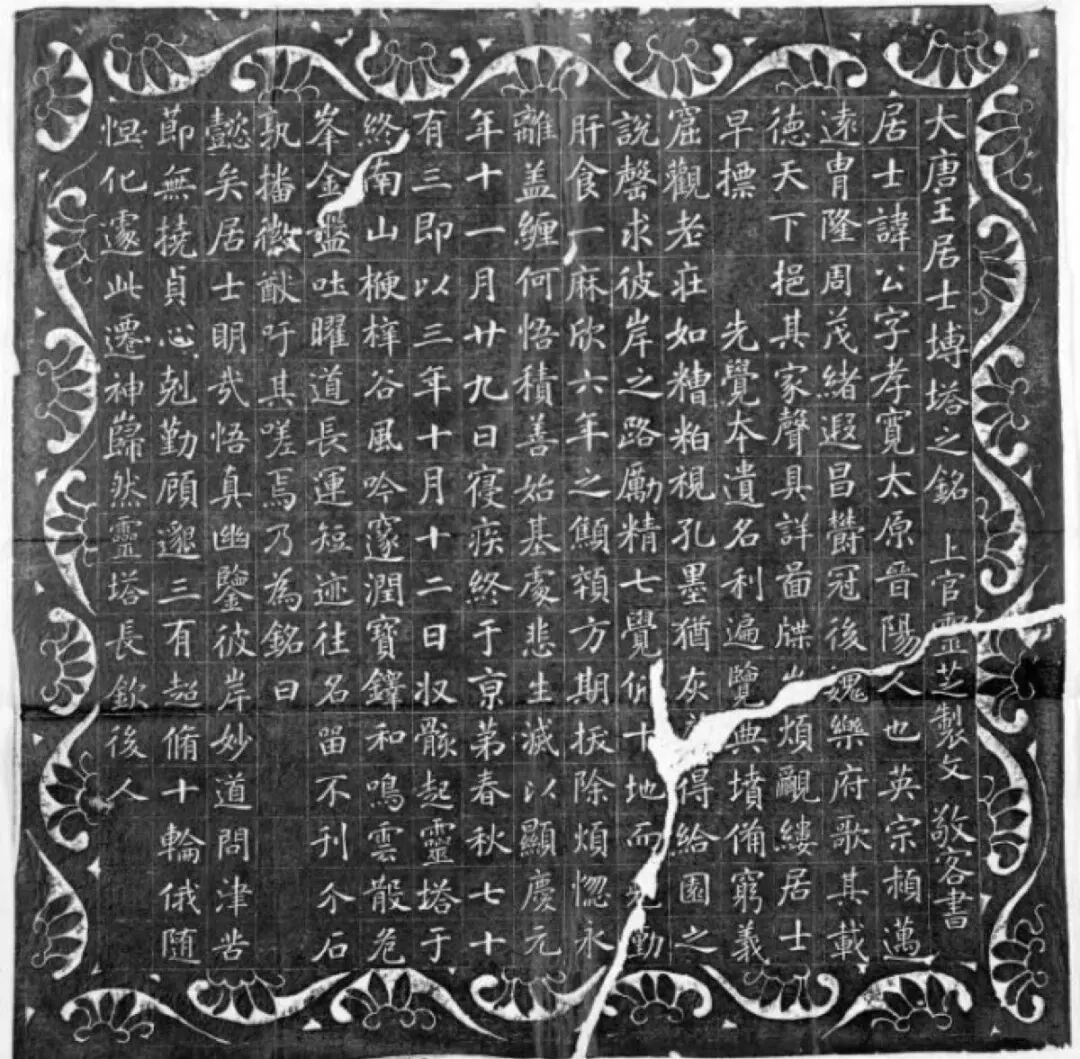 大唐王居士塼塔之銘 上官靈芝製文 敬客書
居士諱公字孝寬太原晉陽人也英宗穎邁
遠胄隆周茂緒遐昌欝冠後魏樂府歌其載
德天下挹其家聲具詳啚牒煩覼縷居士
早摽 先覺本遺名利遍覽典墳備窮義
窟觀老莊如糟粕視孔墨猶灰得給園之
說罄求彼岸之路勵精七覺仰十地而勤
肝食一麻欣六年之顦顇方期拔除煩惱永
離盖纏何悟積善始基處悲生滅以顯慶元
年十一月廿九日寑疾終于京第春秋七十
有三即以三年十月十二日收骸起靈塔于
終南山楩梓谷風吟邃澗寶鐸和鳴雲散危
峯金盤吐曜道長運短迹往名留不刊介石
孰播徽猷吁其嗟焉乃為銘曰
懿矣居士明哉悟真幽鑒彼岸妙道問津苦
莭無撓貞心剋勤顧邈三有超脩十輪俄隨
怛化遽此遷神巋然靈塔長欽後人